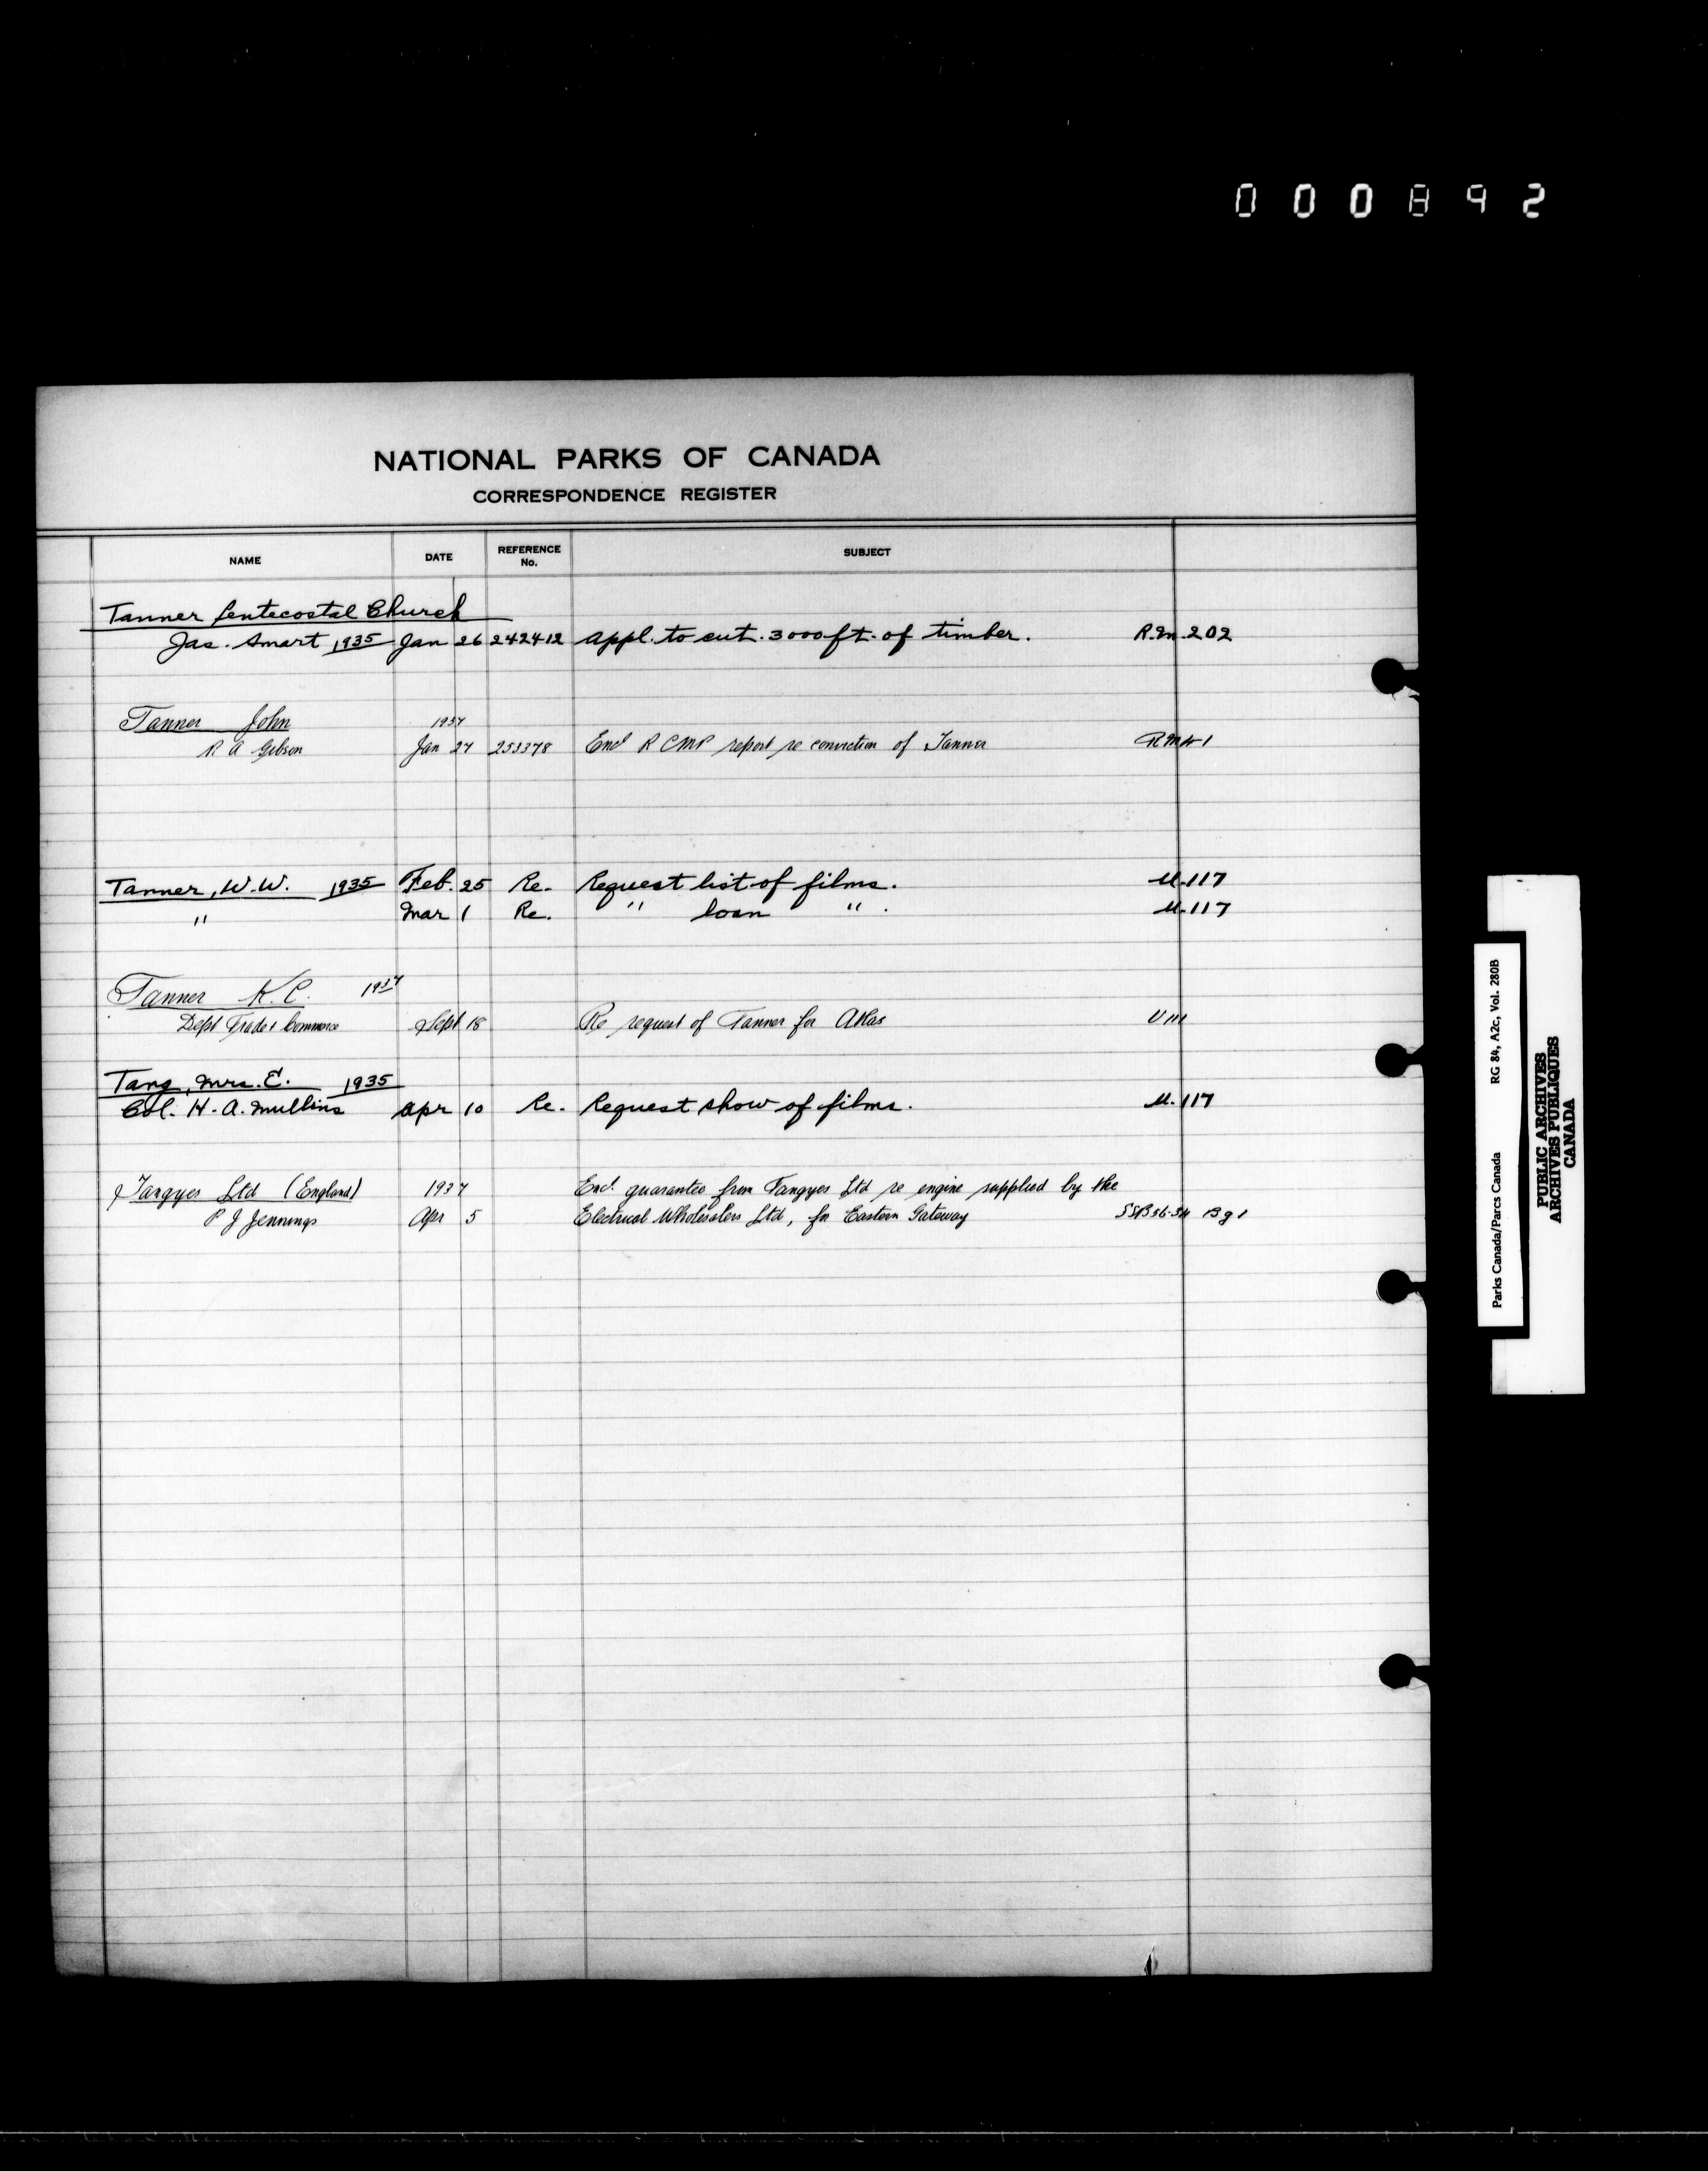 000892
NATIONAL PARKS OF CANADA
CORRESPONDENCE REGISTER
NAME DATE REFERENCE No. SUBJECT
Tanner Pentecostal Church
Jas. Smart 1935 Jan 26 242412 Appl. to cut 3000 ft. of timber. R.M. 202
Tanner John 1937
R A Gibson Jan 27 253378 Encl R C M P report re conviction of Tanner
Tanner, W.W. 1935 Feb. 25 Re. Request list of films. U.117
" Mar 1 Re. " loan " . U.117
Tanner K. C. 1937
Dept Trade & Commerce Sept 18 Re request of Tanner for Atlas U 111
Tang, Mrs. E. 1935
Col. H. A. Mullins Apr 10 Re. Request show of films. U.117
Tangyes Ltd (England) 1937 Encl. guarantee from Tangyes Ltd re engine supplied by the
P J Jennings Apr 5 Electrical Wholesalers Ltd, for Eastern Gateway
Parks Canada/Parcs Canada RG 84, A2c, Vol. 280B
PUBLIC ARCHIVES
ARCHIVES PUBLIQUES
CANADA